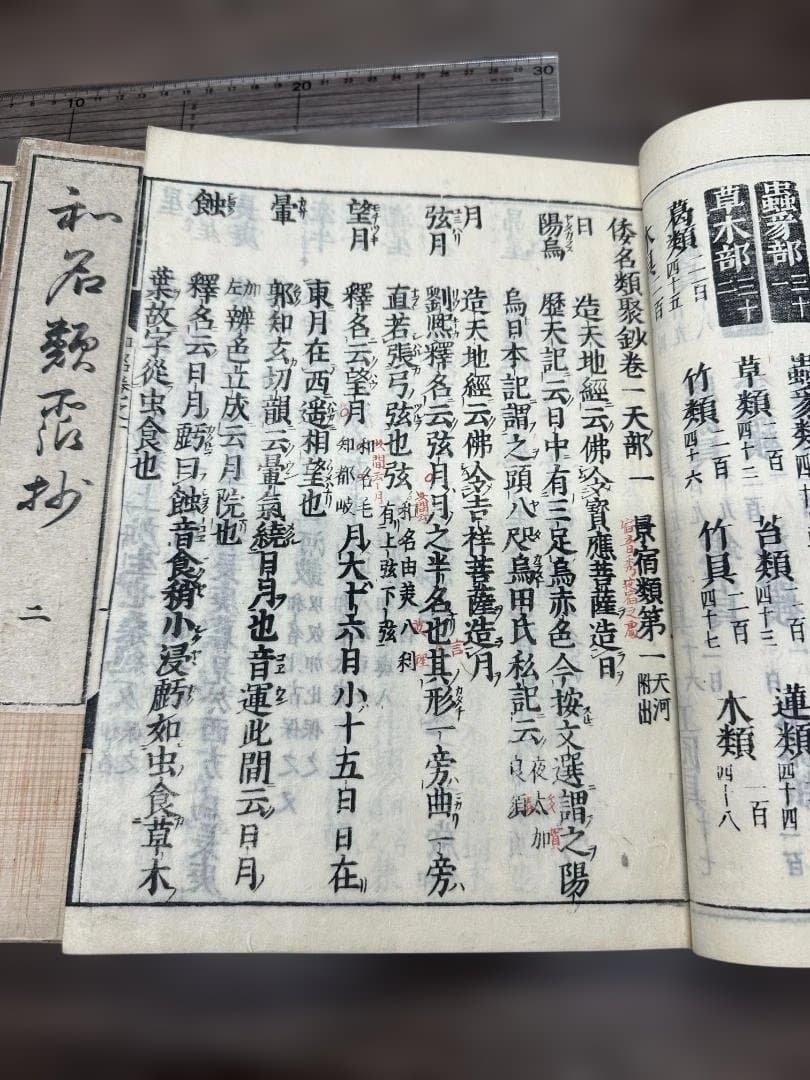 蟲豸部三十一
草木部三十二
葛類二百四十五
蟲豸類
草類二百四十三
竹類二百四十六
苔類二百四十三
竹具二百四十七
蓮類
木類一百四十八
倭名類聚鈔卷一天部一
景宿類第一天河附出
日
造天地經云佛令寶應菩薩造日
陽烏
歷天記云日中有三足烏赤色今按文選謂之陽
烏日本記謂之頭八咫烏田氏私記云夜太加良須
月
造天地經云佛令吉祥菩薩造月
弦月
劉熈釋名云弦月月之半名也其形一旁曲一旁
直若張弓弦也弦和名由美八利有上弦下弦
望月
釋名云望月和名毛知都岐月大十六日小十五日日在
東月在西遥相望也
暈
郭知玄切韻云暈氣繞日月也音運此間云日月
加左辨色立成云月院也
蝕
釋名云日月虧曰蝕音食稍小浸虧如虫食草木
葉故字從虫食也
和名類聚抄
二
10 20 30